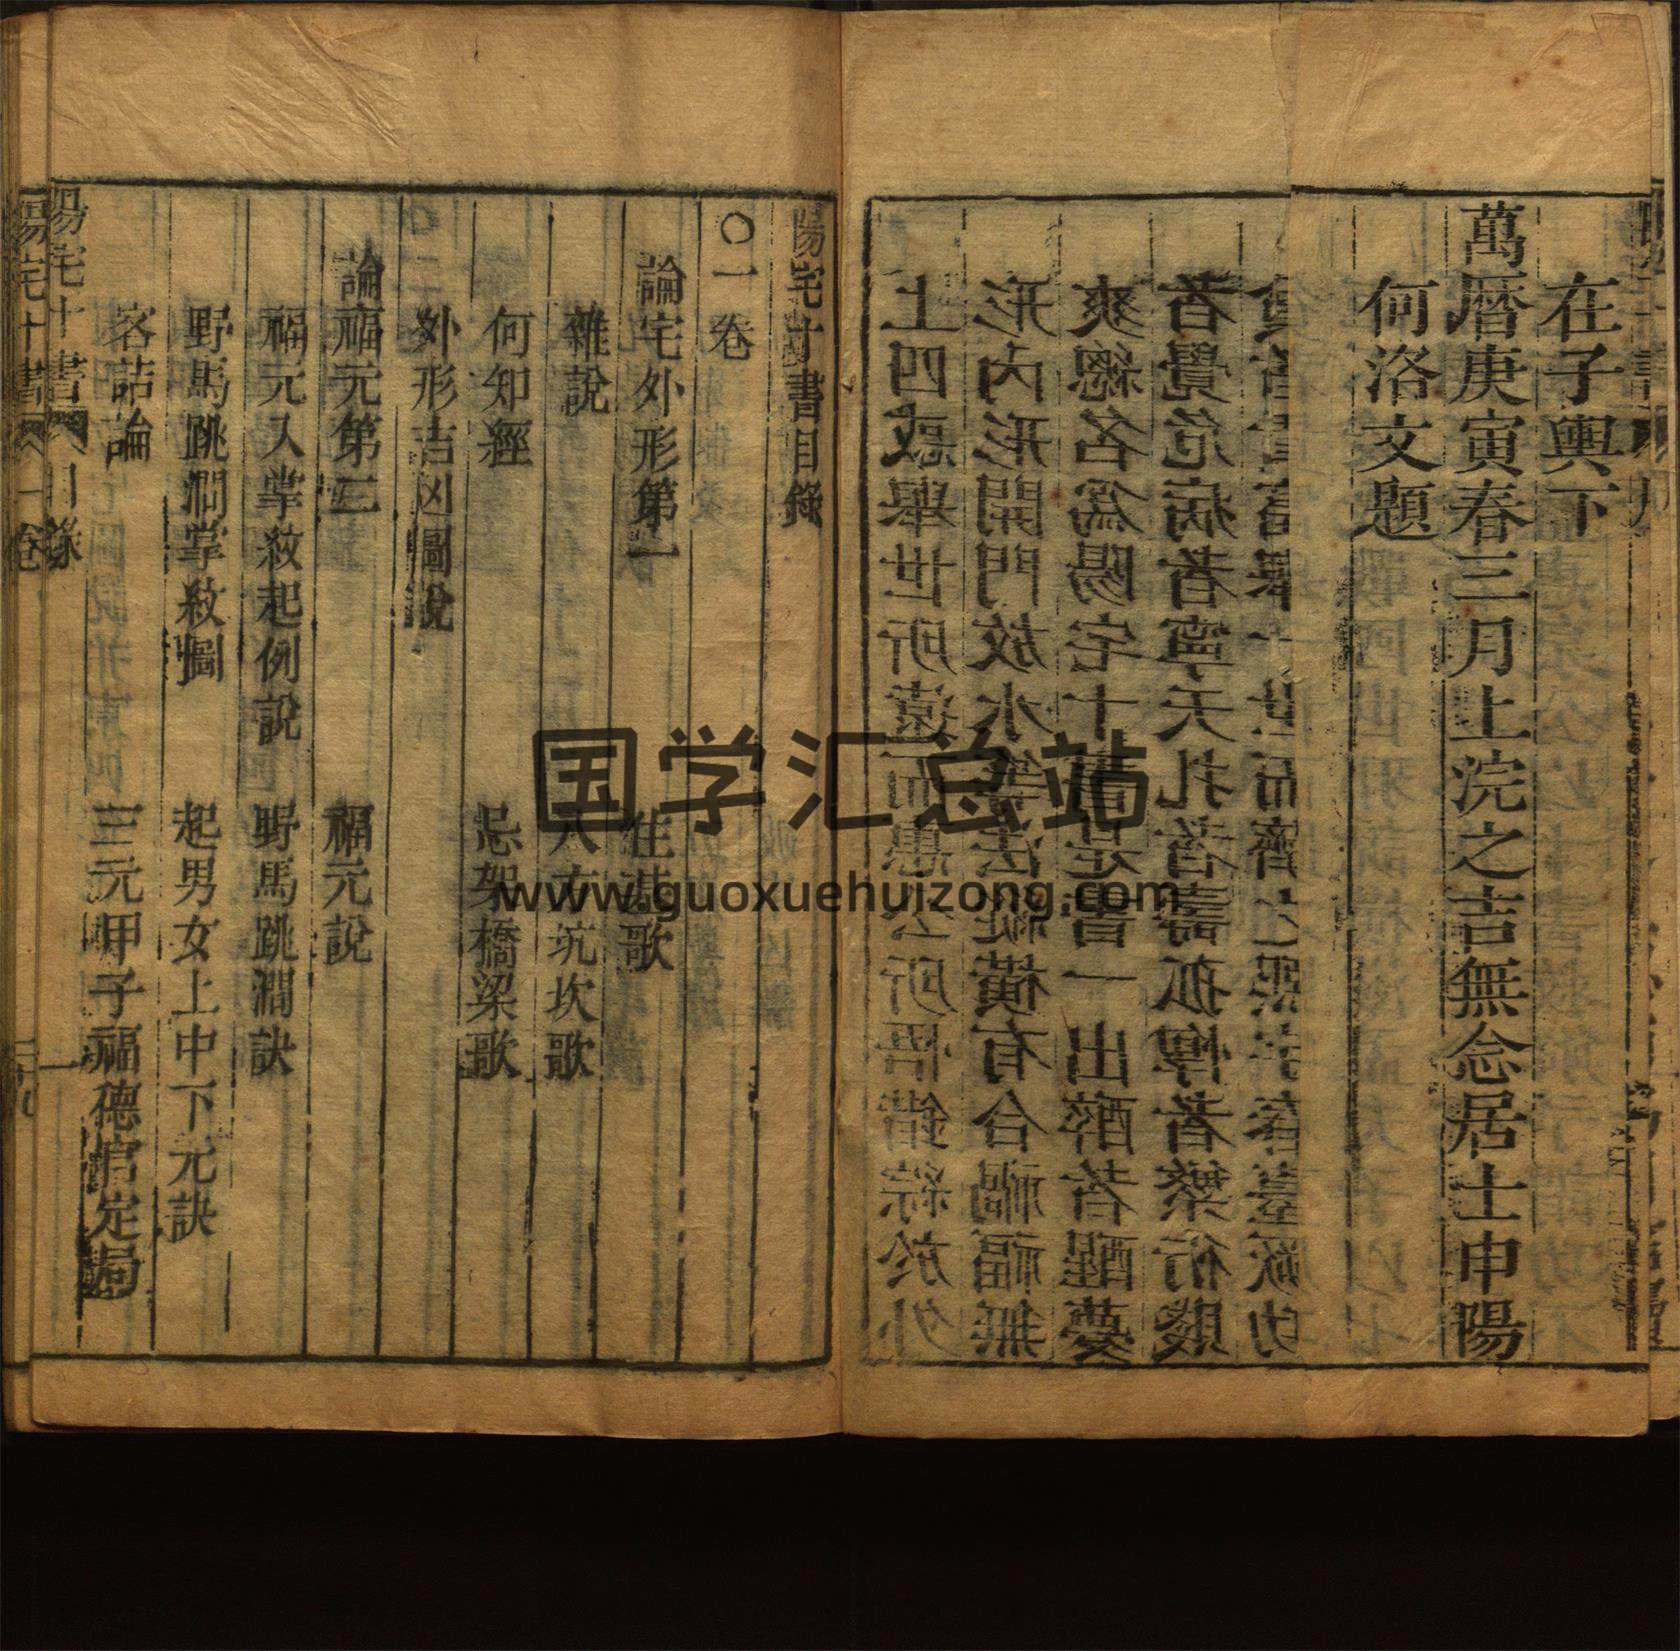 在子輿下
萬曆庚寅春三月上浣之吉無念居士申陽
何洛文題
上四或舉世所遠而 所悟錯綜於外
形內形開門放水等法縱橫有合禍福無
爽總名為陽宅十書是書一出醉者醒夢
者覺危病者寧夭札者壽孤惸者繁衍賤
陽宅十書目錄
〇一卷
論宅外形第一 住基歌
雜說 八方坑坎歌
何知經 忌架橋梁歌
外形吉凶圖說
論福元第二 福元說
福元入掌紋起例說 野馬跳澗訣
野馬跳澗掌紋圖 起男女上中下元訣
客詰論 三元甲子福德宮定局
陽宅十書 目錄 一
陽宅十書 一卷
国学汇总站
www.guoxuehuizong.com